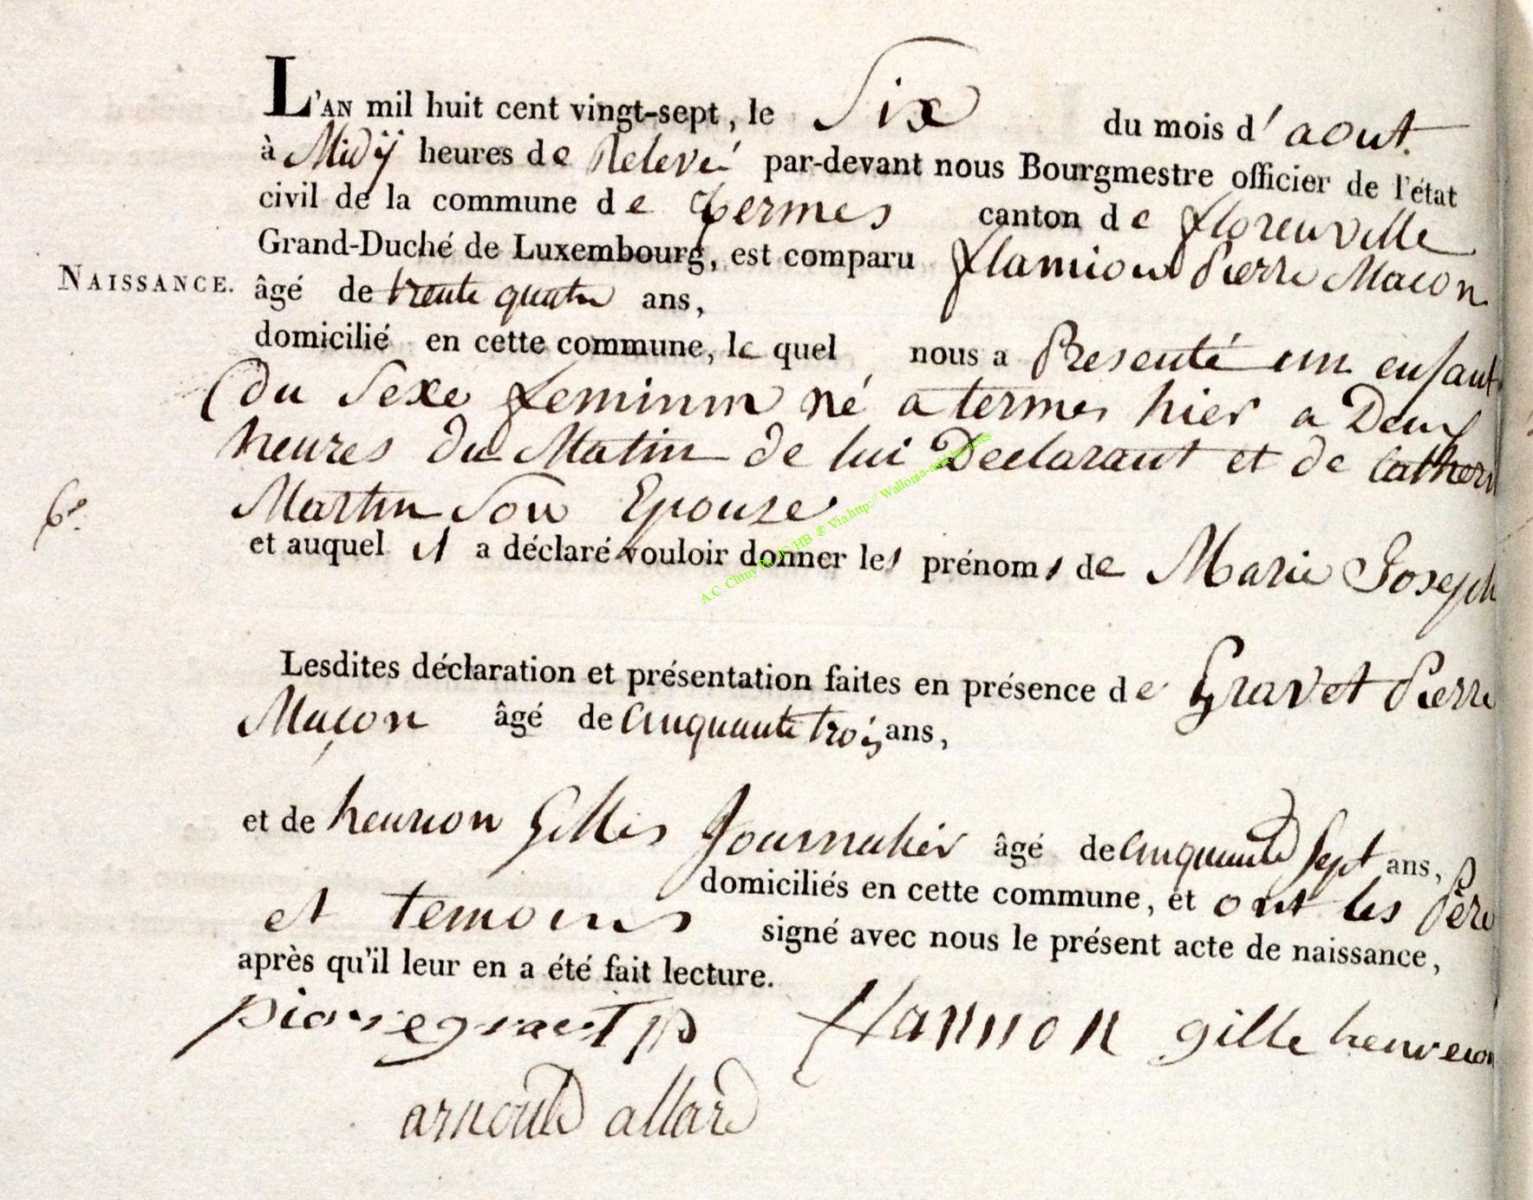 L'AN mil huit cent vingt-sept, le Six du mois d'aout.
à Midÿ heures de Relevé par-devant nous Bourgmestre officier de l'état
civil de la commune de termes canton de florenville
Grand-Duché de Luxembourg, est comparu flamion Pierre Macon
NAISSANCE. âgé de trente quatre ans,
domicilié en cette commune, le quel nous a Presenté un enfant
du Sexe feminin né a termes hier a Deux
heures du Matin de lui Declarant et de Catherin
Martin Son Epouse
6e.
et auquel il a déclaré vouloir donner les prénoms de Marie Joseph
Lesdites déclaration et présentation faites en présence de Gravet Pierre
Maçon âgé de Cinquante trois ans,
et de henrion Gilles Journalier âgé de Cinquante Sept ans,
domiciliés en cette commune, et ont les Père
et temoins signé avec nous le présent acte de naissance,
après qu'il leur en a été fait lecture.
p flamion gille
arnould allard
A.C. Chiny Via http:// Wallonia